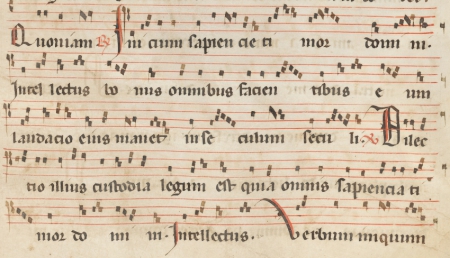 Quoniam R Inicium sapiencie timor domini.
Intellectus bonus omnibus facientibus eum
laudacio eius manet in seculum seculi. V Dilec
tio illius custodia legum est quia omnis sapiencia ti
mor domini. Intellectus. Verbum iniquum